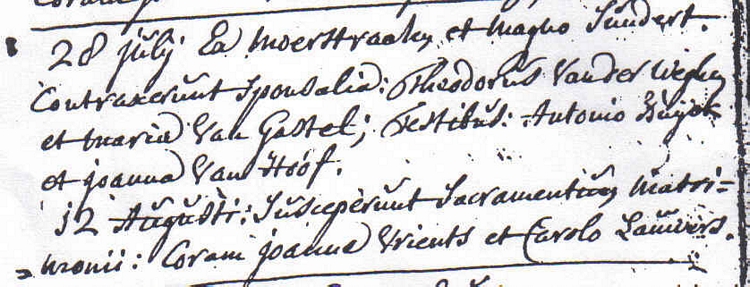 28 julij Ex Moerstraaten et magno Sundert.
Contraxerunt Sponsalia: Theodorus Vander Weghen
et maria Van Gastel; Testibus: Antonio
et joanna Van Hoof.
12 Augusti: Susceperunt Sacramentum Matri=
=monii: Coram joanna Vrients et Carolo Lauwers.